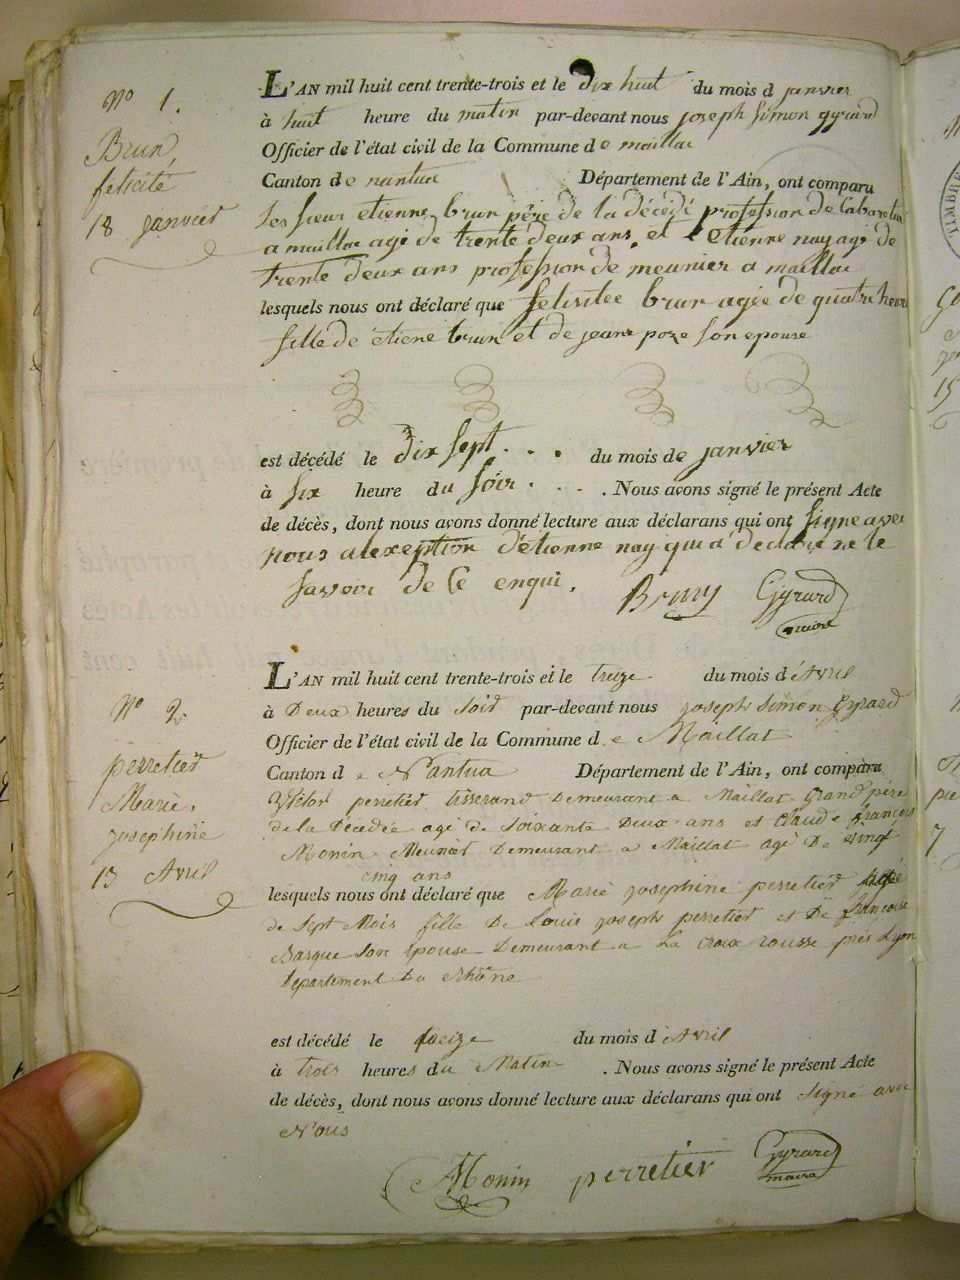 N° 1.
Brun,
felicité
18 janvier
L'AN mil huit cent trente-trois et le dix huit du mois d janvier
à huit heure du matin par-devant nous joseph Simon gyrard
Officier de l'état civil de la Commune de maillac
Canton de nantua Département de l'Ain, ont comparu
Les sieur etienne brun père de la décédé profession de Cabaretier
a maillac agé de trente deux ans, et etienne nay agé de
trente deux ans profession de meunier a maillac
lesquels nous ont déclaré que felisitee brun agée de quatre heure
fille de étiene brun et de jeane poze son epouse
est décédé le dix sept . . . du mois de janvier
à six heure du soir . . . . Nous avons signé le présent Acte
de décès, dont nous avons donné lecture aux déclarans qui ont signe avec
nous a lexeption détienne nay qui a declaré ne le
savoir de Ce enqui.
Gyrard
maire
N° 2.
perretier
Marie,
josephine
13 Avril
L'AN mil huit cent trente-trois et le treize du mois d'Avril
à Deux heures du Soir par-devant nous joseph Simon Gyrard
Officier de l'état civil de la Commune de Maillat
Canton de Nantua Département de l'Ain, ont comparu
perretier tisserand Demeurant a Maillat Grand père
de la Décedée agé de Soixante Deux ans et Claude françois
Monin Demeurant a Maillat agé De vingt
cinq ans
lesquels nous ont déclaré que Marie josephine perretier Agée
de Sept Mois fille De Louis joseph perretier et De françoise
Basque Son Epouse Demeurant a La Croix rousse près Lyon
Département Du Rhône
est décédé le treize du mois d'Avril
à trois heures du Matin . Nous avons signé le présent Acte
de décès, dont nous avons donné lecture aux déclarans qui ont Signé avec
Nous
Monin perretier Gyrard
maire